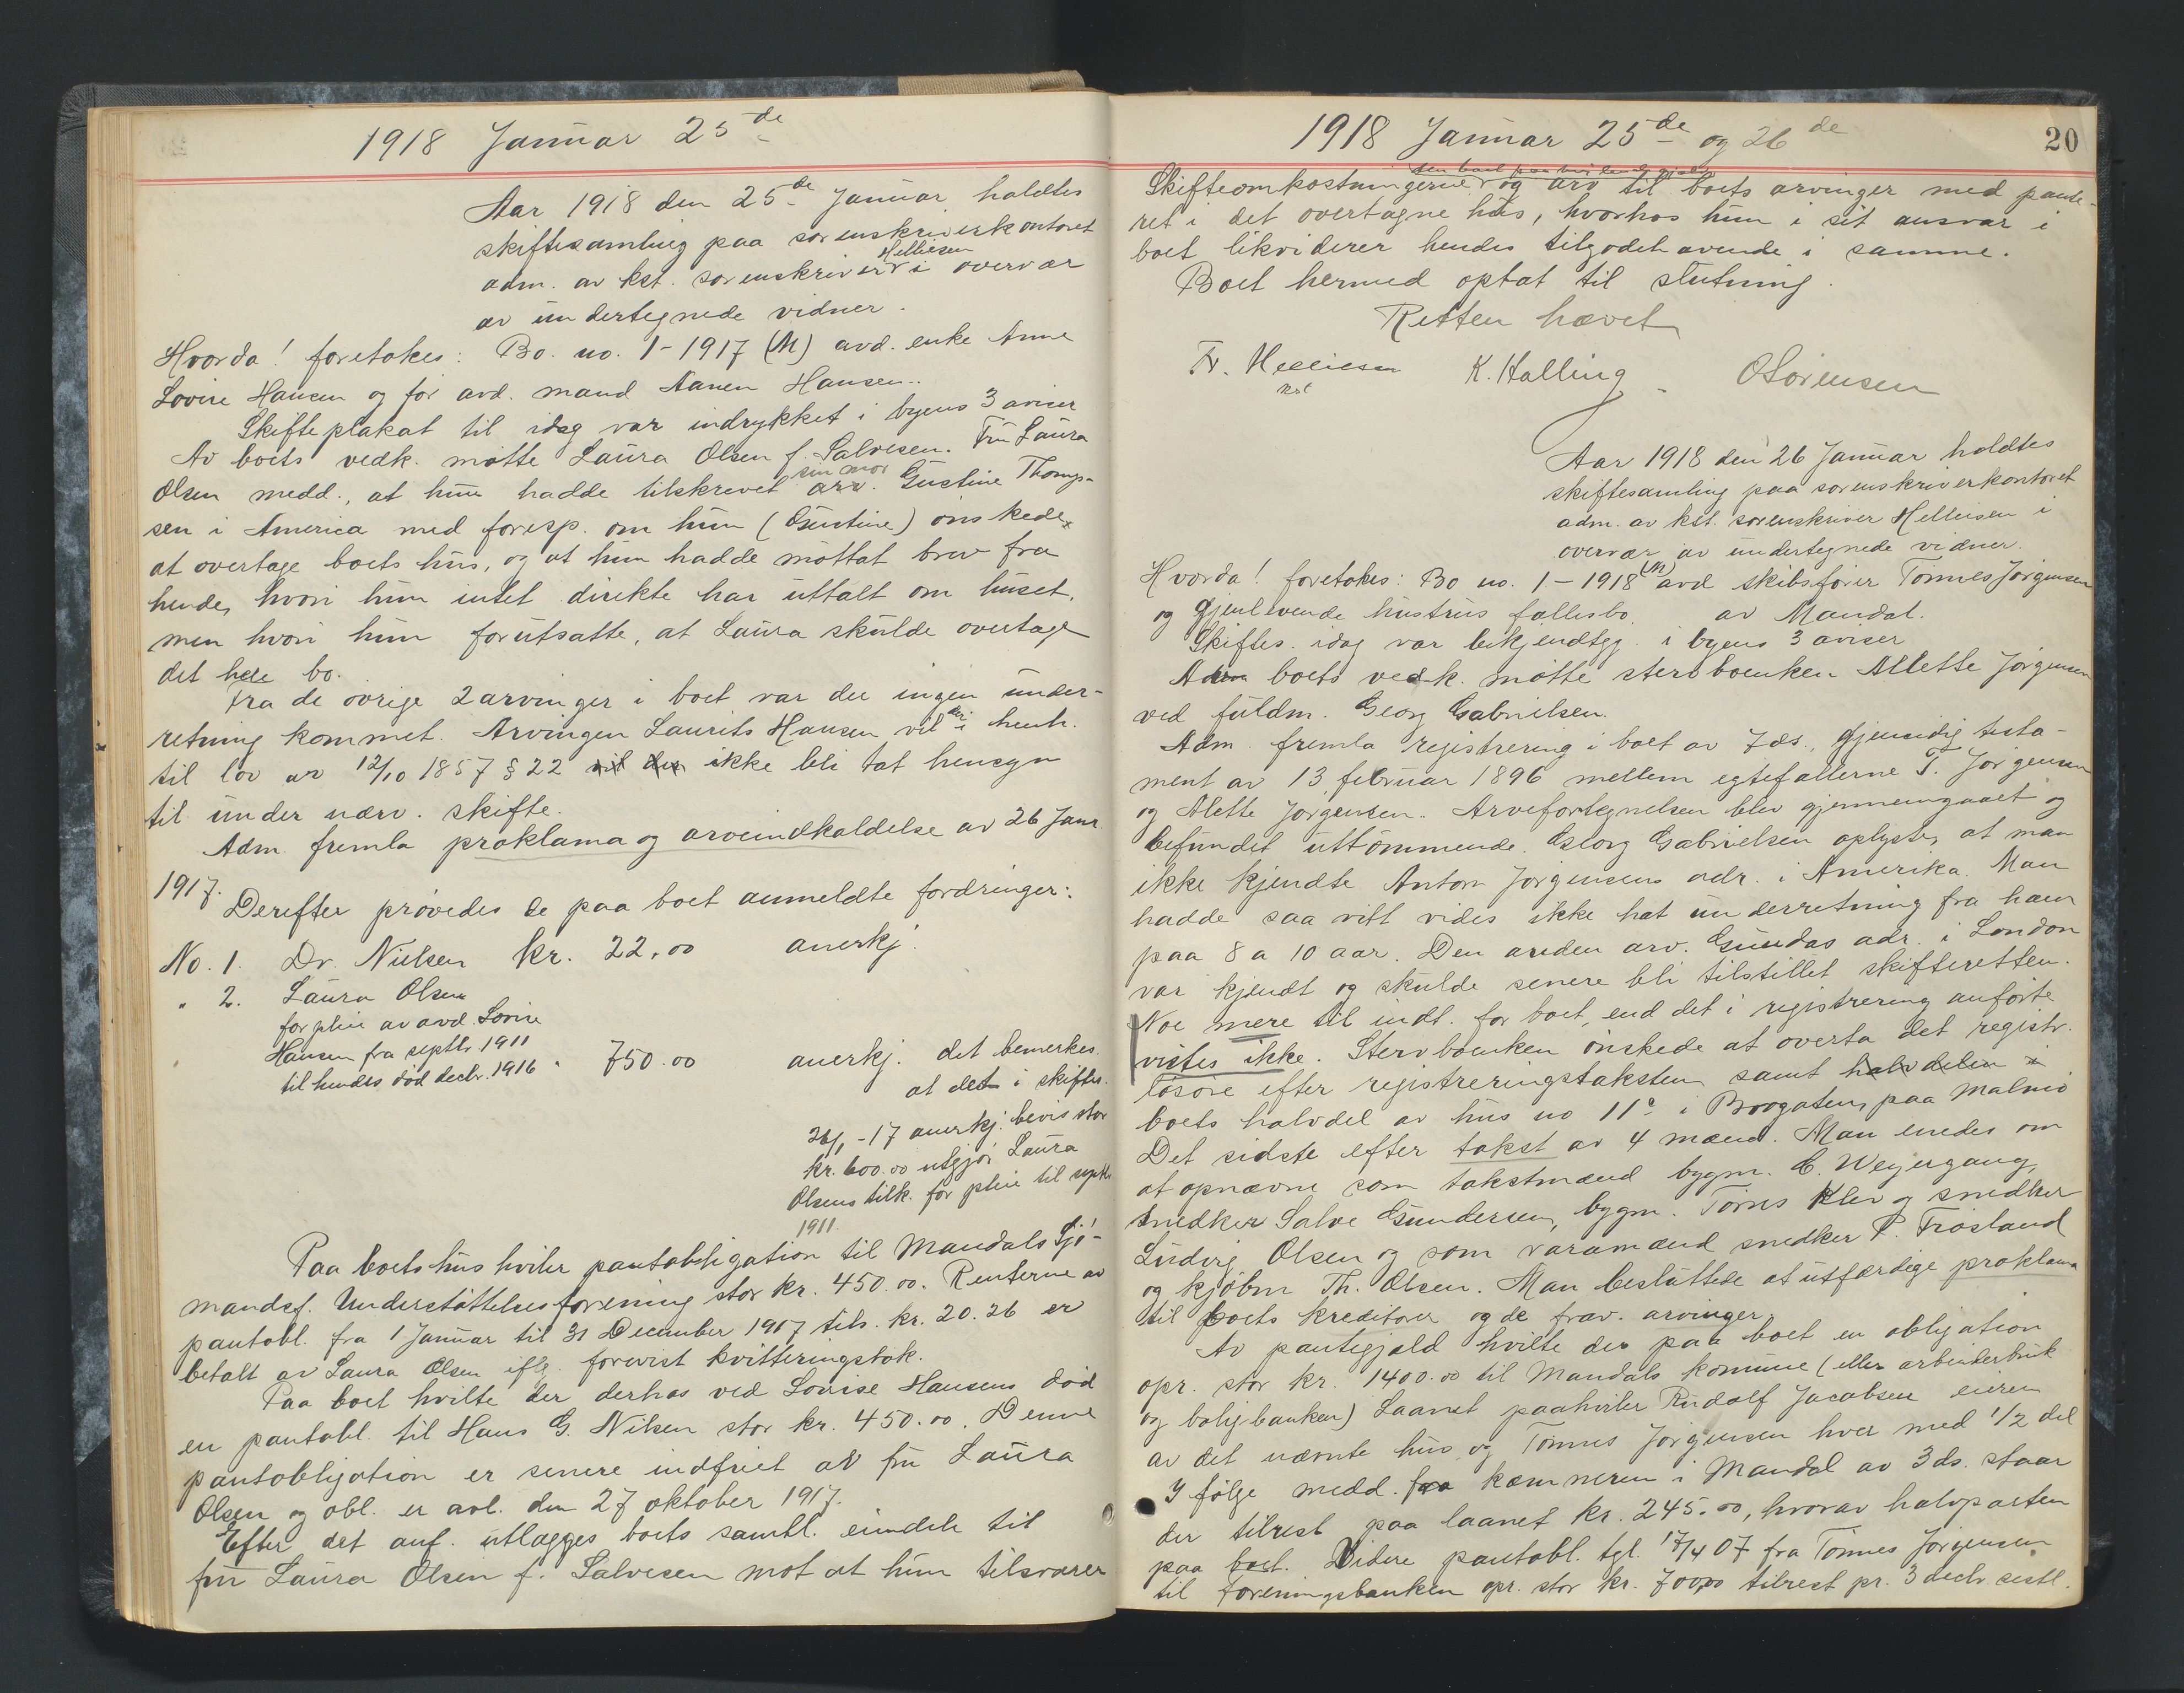 1918 Januar 25de
Aar 1918 den 25de Januar holdtes
skiftesamling paa sorenskriverkontoret
adm. av kst. sorenskriver Helliesen i overvær
av undertegnede vidner.
Hvorda! foretokes: Bo. no. 1-1917 (M) avd. enke Anne
Lovise Hansen og før avd. mand Aanen Hansen.
Skifteplakat til idag var indrykket i byens 3 aviser
Av boets vedk. møtte Laura Olsen f. Salvesen. Fru Laura
Olsen medd., at hun hadde tilskrevet sin mor arv. Gustine Thomp-
sen i America med foresp. om hun (Gustine) ønskede
at overtage boets hus, og at hun hadde mottat brev fra
hende, hvori hun intet direkte har uttalt om huset,
men hvori hun forutsatte, at Laura skulde overtage
det hele bo.
Fra de øvrige 2 arvinger i boet var der ingen under-
retning kommet. Arvingen Laurits Hansen vil der i henh.
til lov av 12/10 1857 § 22 vil der ikke bli tat hensyn
til under nærv. skifte.
Adm. fremla proklama og arveindkaldelse av 26 Janr.
1917.
Derefter prøvedes de paa boet anmeldte fordringer:
No. 1. Dr. Nielsen kr. 22,00 anerkj.
" 2. Laura Olsen
for pleie av avd. Lovise
Hansen fra septbr. 1911
til hendes død decbr. 1916 " 750.00 anerkj. det bemerkes.
at det i skiftes.
26/1-17 anerkj. bevis stor
kr. 600.00 utgjør Laura
Olsens tilk. for pleie til septbr
1911.
Paa boets hus hviler pantobligation til Mandals Sjø-
mandsf. Understøttelsesforening stor kr. 450.00. Renterne av
pantobl. fra 1 Januar til 31 December 1917 tils. kr. 20.26 er
betalt av Laura Olsen iflg. forevist kvitteringsbok.
Paa boet hvilte der derhos ved Lovise Hansens død
en pantobl. til Hans G. Nilsen stor kr. 450.00. Denne
pantobligation er senere indfriet av fru Laura
Olsen og obl. er avl. den 27 oktober 1917.
Efter det anf. utlægges boets samtl. eiendele til
fru Laura Olsen f. Salvesen mot at hun tilsvarer
1918 Januar 25de og 26de
20
Skifteomkostningerne og arv til boets arvinger med pante-
ret i det overtagne hus, hvorhos hun i sit ansvar i
boet likviderer hendes tilgodehavende i samme.
Boet hermed optat til slutning.
Retten hævet
Fr. Helliesen K. Halling OSørensen
kst
Aar 1918 den 26 Januar holdtes
skiftesamling paa sorenskriverkontoret
adm. av kst. sorenskriver Helliesen i
overvær av undertegnede vidner.
Hvorda! foretokes: Bo no. 1-1918 (M) avd skibsfører Tønnes Jørgensen
og gjenlevende hustrus fællesbo. av Mandal.
Skiftes. idag var bekjendtgj. i byens 3 aviser
boets vedk. møtte stervboenken Allette Jørgensen
ved fuldm. Georg Gabrielsen.
Adm. fremla registrering i boet av 7ds., gjensidig testa-
ment av 13 februar 1896 mellem egtefællerne T. Jørgensen
og Alette Jørgensen. Arvefortegnelsen blev gjennemgaaet og
befundet uttømmende. Georg Gabrielsen oplyste, at man
ikke kjendte Anton Jørgensens adr. i Amerika. Man
hadde saa vitt vides ikke hat underretning fra ham
paa 8 a 10 aar. Den anden arv. Gundas adr. i London
var kjendt og skulde senere bli tilstillet skifteretten.
Noe mere til indt. for boet, end det i registrering anførte
vistes ikke. Stervboenken ønskede at overta det registr.
løsøre efter registreringstaksten samt halvdelen i
boets halvdel av hus no 11a i Broogaten, paa Malmø
Det sidste efter takst av 4 mænd. Man enedes om
at opnævne som takstmænd bygm. C. Weyergang,
snedker Salve Gundersen, bygm. Tønnes Klev og snedker
Ludvig Olsen og som varamænd snedker P. Frøsland
og kjøbm Th. Olsen. Man besluttede at utfærdige proklama
til boets kreditorer og de frav. arvinger.
Av pantegjæld hvilte der paa boet en obligation
opr. stor kr. 1400.00 til Mandals kommune (eller arbeiderbruk
og boligbanken) Laanet paahviler Rudolf Jacobsen eieren
av det nævnte hus og Tønnes Jørgensen hver med 1/2 del
I følge medd. fra kæmneren i Mandal av 3ds. staar
der tilrest paa laanet kr. 245.00, hvorav halvparten
paa boet. Videre pantobl. tgl. 17/4 07 fra Tønnes Jørgensen
til Foreningsbanken opr. stor kr. 700,00 tilrest pr. 3 decbr. sistl.